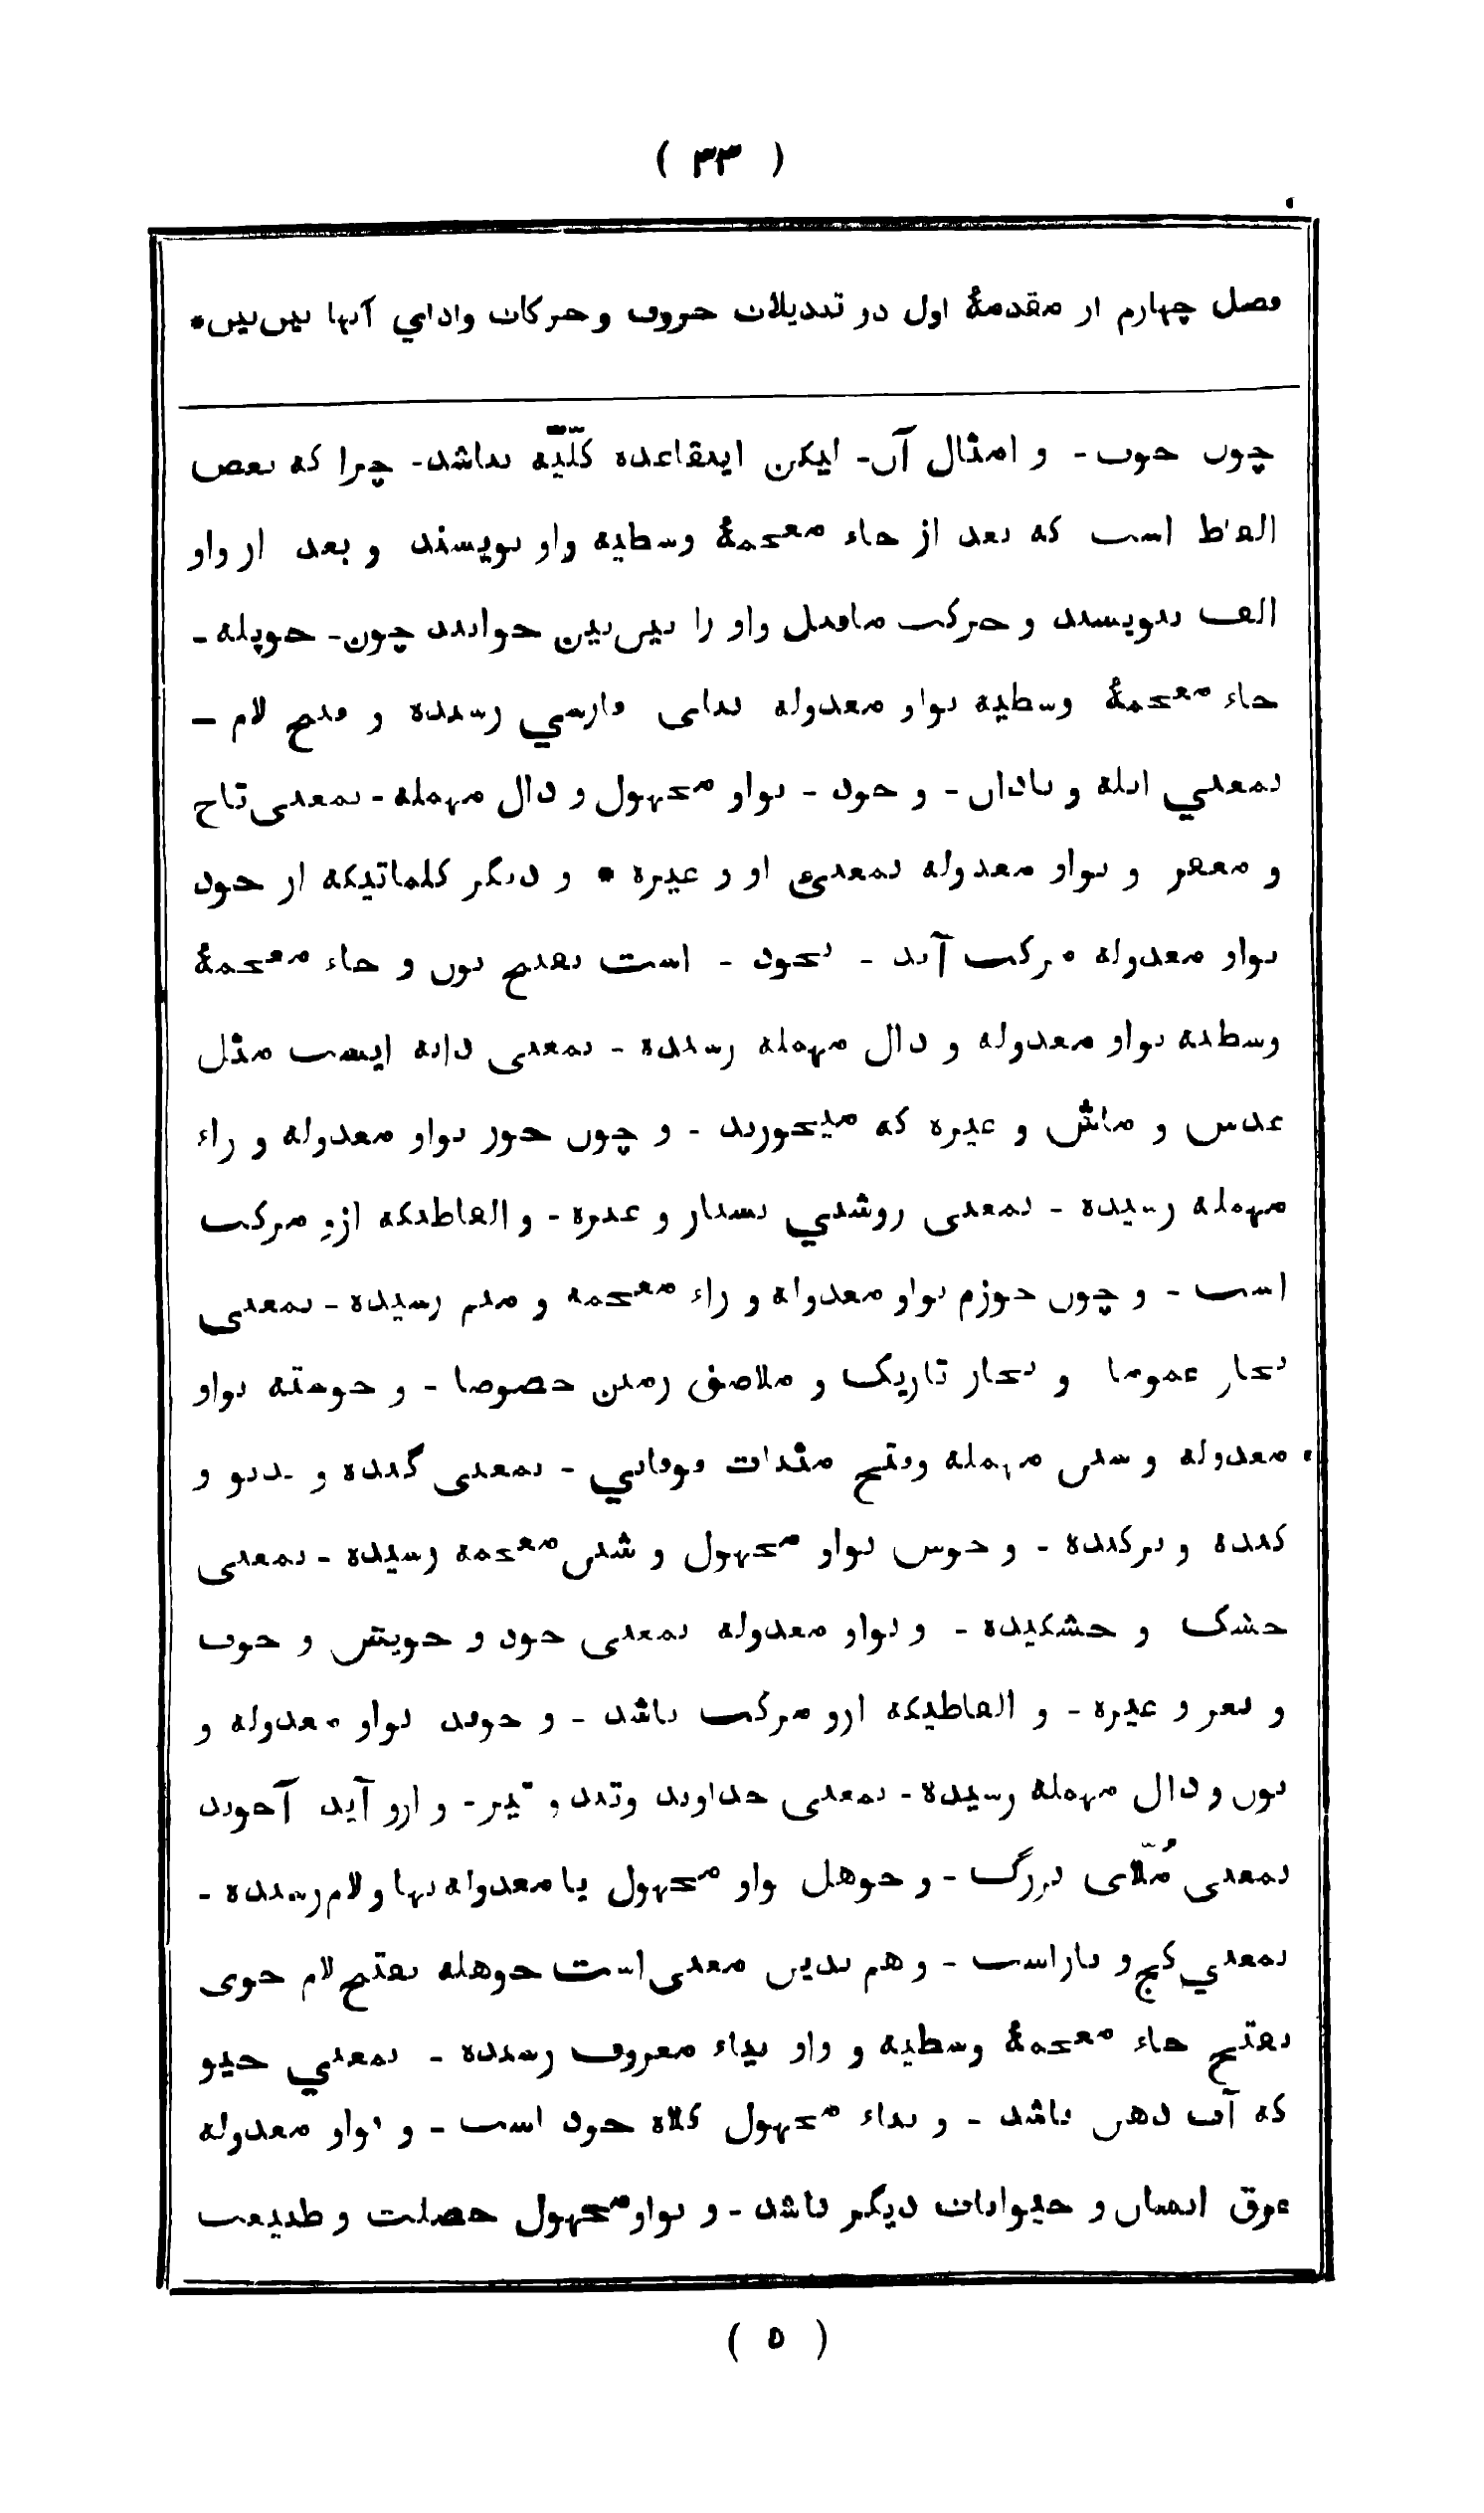 ( ٣٣ )
فصل چهارم از مقدمهٔ اول در تبدیلات حروف و حرکات و ادای آنها بین بین •
چون خوب - و امثال آن - لیکن اینقاعده کلّیّه نباشد - چرا که بعض
الفاظ است که بعد از خاء معجمهٔ وسطیه واو نویسند و بعد از واو
الف ننویسند و حرکت ماقبل واو را بین بین خوانند چون - خوپله -
خاء معجمهٔ وسطیه بواو معدوله ببای فارسي رسیده و فتح لام -
بمعني ابله و نادان - و خود - بواو مجهول و دال مهمله - بمعنی تاج
و مغفر و بواو معدوله بمعنی او و غیره • و دیگر کلماتیکه از خود
بواو معدوله مرکب آید - نخود - است بفتح نون و خاء معجمهٔ
وسطیه بواو معدوله و دال مهمله رسیده - بمعنی دانه ایست مثل
عدس و ماش و غیره که میخورند - و چون خور بواو معدوله و راء
مهمله رسیده - بمعنی روشني بسیار و غیره - و الفاظیکه ازو مرکب
است - و چون خوزم بواو معدوله و زاء معجمه و میم رسیده - بمعنی
بخار عموما و بخار تاریک و ملاصق زمین خصوصا - و خوسته بواو
معدوله و سین مهمله وفتح مثنات فوقاني - بمعنی گنده و بدبو و
کنده و برکنده - و خوش بواو مجهول و شین معجمه رسیده - بمعنی
خشک و خشکیده - و بواو معدوله بمعنی خود و خویش و خوب
و نغز و غیره - و الفاظیکه ازو مرکب باشد - و خوند بواو معدوله و
نون و دال مهمله رسیده - بمعنی خداوند وتند و تیز - و ازو آید آخوند
بمعنی مُلّای بزرگ - و خوهل واو مجهول یا معدوله بها و لام رسیده -
بمعني کج و ناراست - و هم بدین معنی است خوهله بفتح لام خوی
بفتح خاء معجمهٔ وسطیه و واو بیاء معروف رسیده - بمعني خیو
که آب دهن باشد - و بیاء مجهول کلاه خود است - و بواو معدوله
عرق انسان و حیوانات دیگر باشد - و بواو مجهول خصلت و طبیعت
( ٥ )